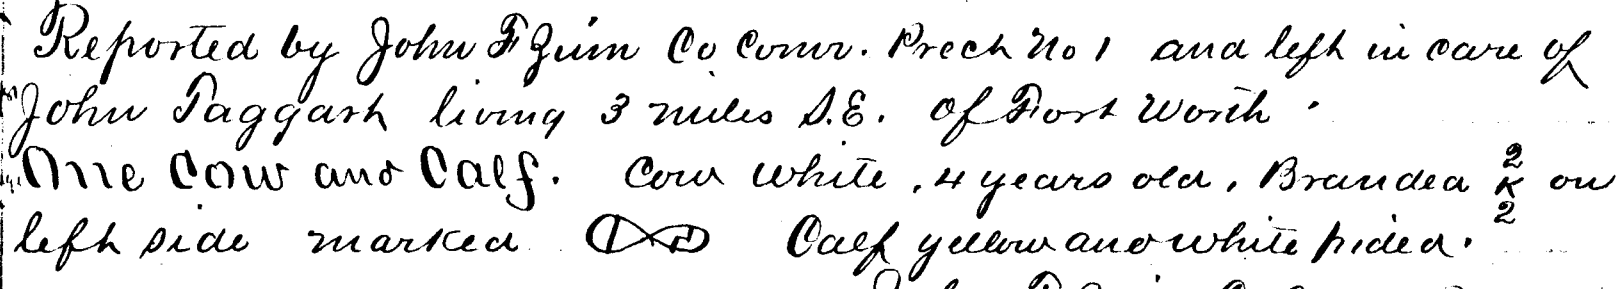 Reported by John F Zinn Co Comr. Prect No 1 and left in care of
John Taggart living 3 miles S.E. of Fort Worth.
One Cow and Calf. Cow white, 4 years old, Branded 2 K 2 on
left side marked Calf yellow and white pided.